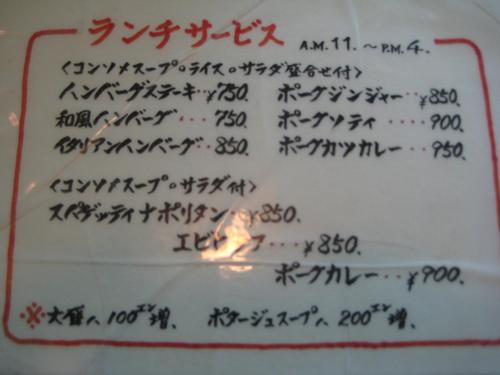 ランチサービス A.M. 11. 〜 P.M. 4.
〈コンソメスープ。ライス。サラダ盛合せ付〉
ハンバーグステーキ・・¥750. ポークジンジャー・・¥850.
和風ハンバーグ・・・750. ポークソティ・・・900.
イタリアンハンバーグ・・850. ポークカツカレー・・950.
〈コンソメスープ。サラダ付〉
スパゲッティナポリタン・・¥850.
・・・¥850.
ポークカレー・・・¥900.
※大盛ハ100エン増、 ポタージュスープハ200エン増、